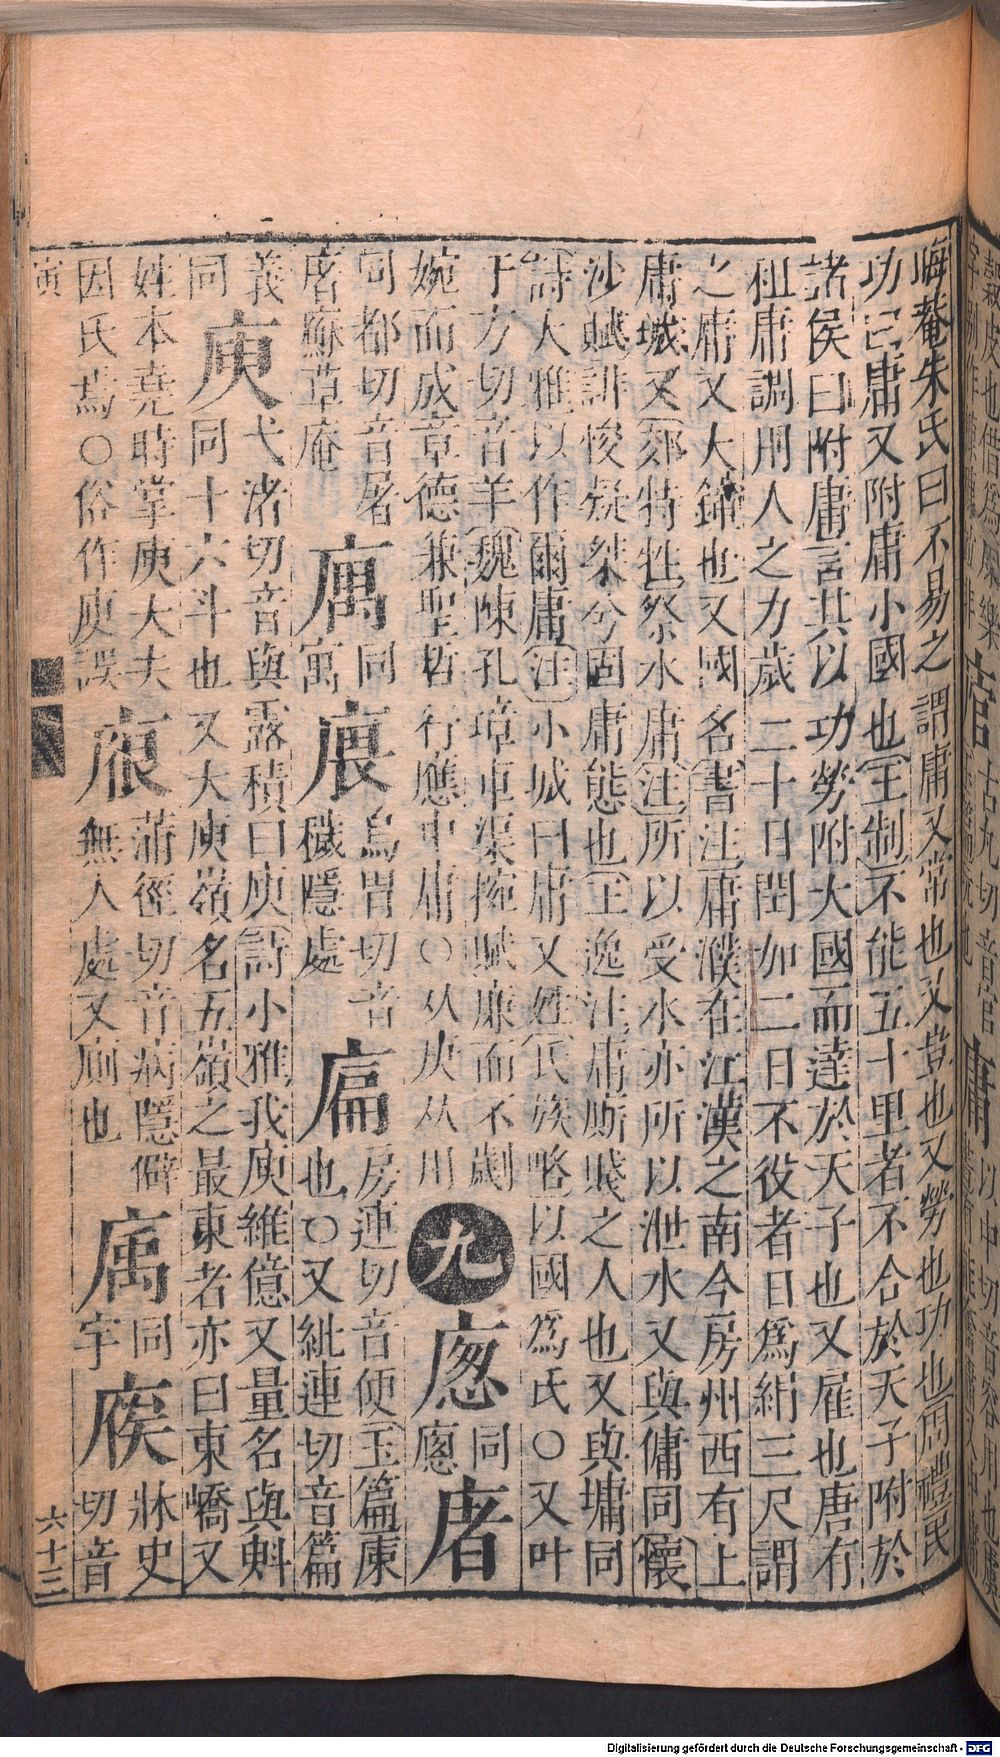 晦菴朱氏曰不易之謂庸又常也又豈也又勞也功也周禮民
功曰庸又附庸小國也王制不能五十里者不合於天子附於
諸侯曰附庸言其以功勞附大國而達於天子也又雇也唐有
租庸調用人之力歲二十日閏加二日不役者日爲絹三尺謂
之庸又大鐘也又國名書注庸濮在江漢之南今房州西有上
庸城又郊特牲祭水庸注所以受水亦所以泄水又與傭同懷
沙賦誹俊疑桀兮固庸態也王逸注庸厮賤之人也又與墉同
詩大雅以作爾庸注小城曰庸又姓氏族略以國爲氏○又叶
于方切音羊魏陳孔璋車渠椀賦廉而不劌
婉而成章德兼聖哲行應中庸○从庚从用
九
㢔
同
廔
㡴
同都切音屠
庮麻草庵
㢏
同
寓
㢗
烏胃切音
穢隱處
㾫
房連切音便玉篇㢉
也○又紕連切音篇
義
庾
弋渚切音與露積曰庾詩小雅我庾維億又量名與㪺
同
同十六斗也又大庾嶺名五嶺之最東者亦曰東嶠又
姓本堯時掌庾大夫
因氏焉○俗作庾誤
蒲徑切音病隱僻
無人處又廁也
同
宇
牀史
切音
寅
六十三
Digitalisierung gefördert durch die Deutsche Forschungsgemeinschaft - DFG